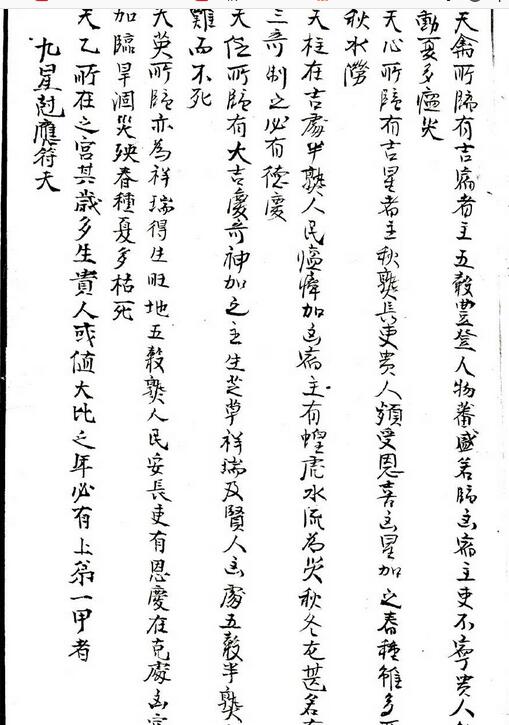 天禽所臨有吉宿者主五穀豐登人物蕃盛若臨凶宿主吏不寧貴人
動夏多瘟災
天心所臨有吉星者主秋熟長吏貴人頻受恩喜凶星加之春種雖多
秋水澇
天柱在吉處半熟人民 加凶宿主有蝗虎水流為災秋冬尤甚若有
三奇制之必有德慶
天任所臨有大吉慶奇神加之主生芝草祥瑞及賢人凶處五穀半熟
難而不死
天英所臨亦為祥瑞得生旺地五穀熟人民安長吏有恩慶在克處凶宿
加臨旱涸災殃春種夏多枯死
天乙所在之宮其歲多生貴人或值大比之年必有上第一甲者
九星尅應符天